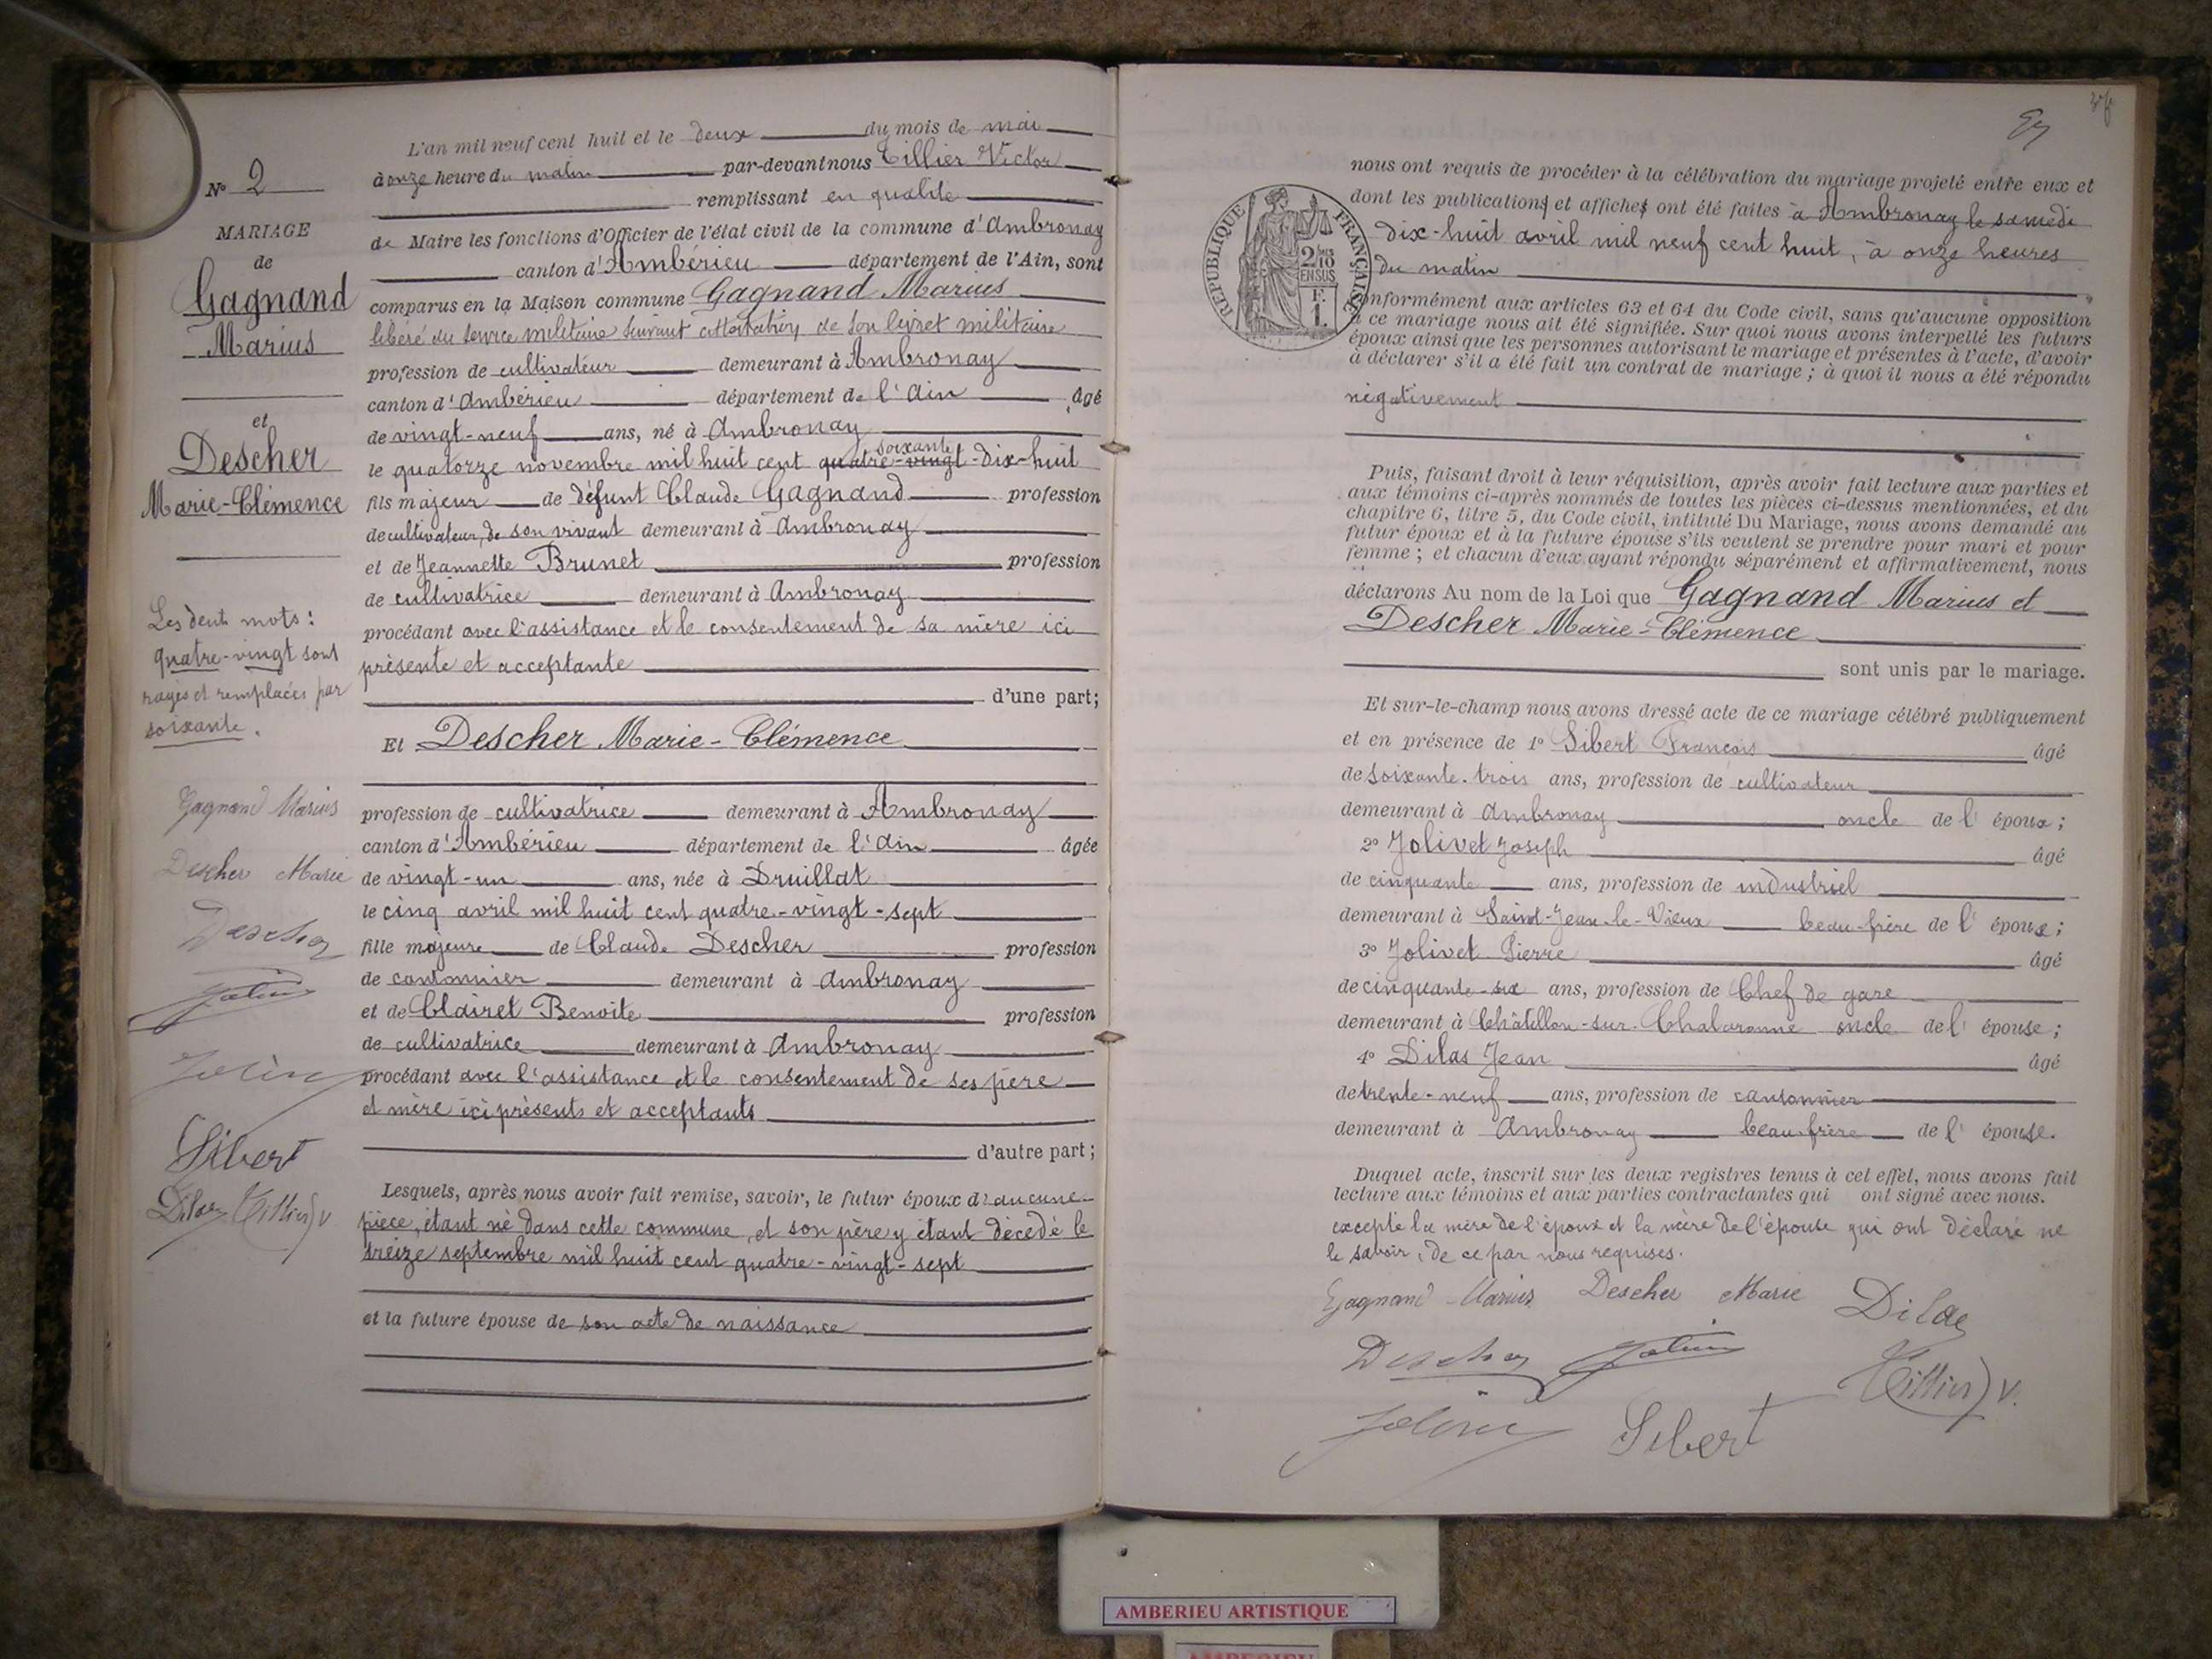 L'an mil neuf cent huit et le deux du mois de mai
à onze heure du matin par-devant nous Tillier Victor
remplissant en qualité
de Maire les fonctions d'Officier de l'état civil de la commune d'Ambronay
canton d'Ambérieu département de l'Ain, sont
comparus en la Maison commune Gagnand Marius
libéré du service militaire suivant attestation de son livret militaire
profession de cultivateur demeurant à Ambronay
canton d'Ambérieu département de l'Ain âgé
de vingt-neuf ans, né à Ambronay
soixante
le quatorze novembre mil huit cent quatre-vingt-dix-huit
fils majeur de défunt Claude Gagnand profession
de cultivateur, de son vivant demeurant à Ambronay
et de Jeannette Brunet profession
de cultivatrice demeurant à Ambronay
procédant avec l'assistance et le consentement de sa mère ici
présente et acceptante
d'une part;
Et Descher Marie-Clémence
profession de cultivatrice demeurant à Ambronay
canton d'Ambérieu département de l'Ain âgée
de vingt-un ans, née à Druillat
le cinq avril mil huit cent quatre-vingt-sept
fille majeure de Claude Descher profession
de cantonnier demeurant à Ambronay
et de Clairet Benoite profession
de cultivatrice demeurant à Ambronay
procédant avec l'assistance et le consentement de ses père
et mère ici présents et acceptants
d'autre part;
Lesquels, après nous avoir fait remise, savoir, le futur époux d'aucune
pièce, étant né dans cette commune, et son père y étant décédé le
treize septembre mil huit cent quatre-vingt-sept
et la future épouse de son acte de naissance
N° 2
MARIAGE
de
Gagnand
Marius
et
Descher
Marie-Clémence
Les deux mots:
quatre-vingt sont
rayés et remplacés par
soixante.
Gagnand Marius
Descher Marie
Descher
Sibert
Dilas Tillier V
nous ont requis de procéder à la célébration du mariage projeté entre eux et
dont les publications et affiches ont été faites à Ambronay le samedi
dix-huit avril mil neuf cent huit, à onze heures
du matin
RÉPUBLIQUE FRANÇAISE
2/10
EN SUS
F.
1.
conformément aux articles 63 et 64 du Code civil, sans qu'aucune opposition
à ce mariage nous ait été signifiée. Sur quoi nous avons interpellé les futurs
époux ainsi que les personnes autorisant le mariage et présentes à l'acte, d'avoir
à déclarer s'il a été fait un contrat de mariage; à quoi il nous a été répondu
négativement
Puis, faisant droit à leur réquisition, après avoir fait lecture aux parties et
aux témoins ci-après nommés de toutes les pièces ci-dessus mentionnées, et du
chapitre 6, titre 5, du Code civil, intitulé Du Mariage, nous avons demandé au
futur époux et à la future épouse s'ils veulent se prendre pour mari et pour
femme; et chacun d'eux ayant répondu séparément et affirmativement, nous
déclarons Au nom de la Loi que Gagnand Marius et
Descher Marie-Clémence
sont unis par le mariage.
Et sur-le-champ nous avons dressé acte de ce mariage célébré publiquement
et en présence de 1° Sibert François âgé
de soixante-trois ans, profession de cultivateur
demeurant à Ambronay oncle de l'époux;
2° Jolivet Joseph âgé
de cinquante ans, profession de industriel
demeurant à Saint-Jean-le-Vieux beau-frère de l'épouse;
3° Jolivet Pierre âgé
de cinquante-six ans, profession de Chef de gare
demeurant à Châtillon-sur-Chalaronne oncle de l'épouse;
4° Dilas Jean âgé
de trente-neuf ans, profession de cantonnier
demeurant à Ambronay beau-frère de l'épouse.
Duquel acte, inscrit sur les deux registres tenus à cet effet, nous avons fait
lecture aux témoins et aux parties contractantes qui ont signé avec nous.
excepté la mère de l'époux et la mère de l'épouse qui ont déclaré ne
le savoir, de ce par nous requises.
Gagnand Marius Descher Marie Dilas
Descher
Tillier V.
Sibert
AMBERIEU ARTISTIQUE
AMBERIEU